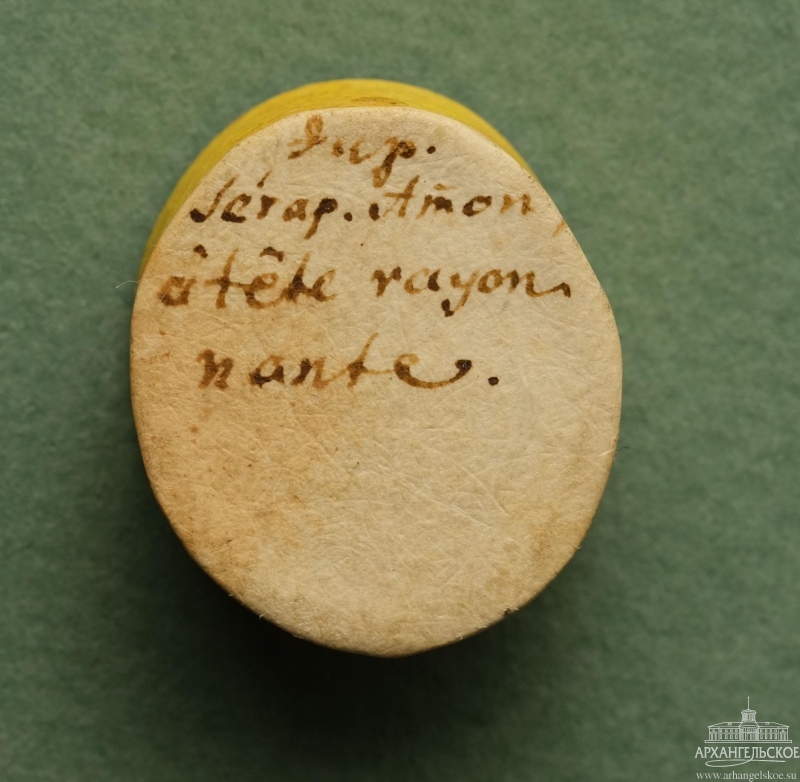 Jup.
Sérap. Am̃on,
à tête rayon,
nante.
АРХАНГЕЛЬСКОЕ
www.arhangelskoe.su